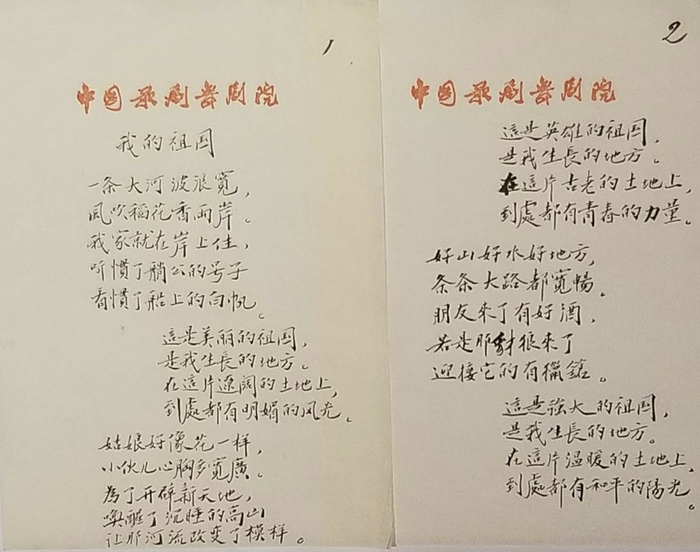 1
中国歌剧舞剧院
我的祖国
一条大河波浪寬，
風吹稻花香両岸。
我家就在岸上住，
听慣了艄公的号子
看慣了船上的白帆。
這是美丽的祖国，
是我生長的地方。
在這片遼闊的土地上，
到處都有明媚的风光。
姑娘好像花一样，
小伙儿心胸多寬廣。
為了开辟新天地，
喚醒了沉睡的高山
让那河流改变了模样。
2
中国歌剧舞剧院
這是英雄的祖国，
是我生長的地方。
在這片古老的土地上，
到處都有青春的力量。
好山好水好地方，
条条大路都寬暢。
朋友来了有好酒，
若是那豺狼来了
迎接它的有獵鎗。
這是強大的祖国，
是我生長的地方。
在這片温暖的土地上，
到處都有和平的陽光。